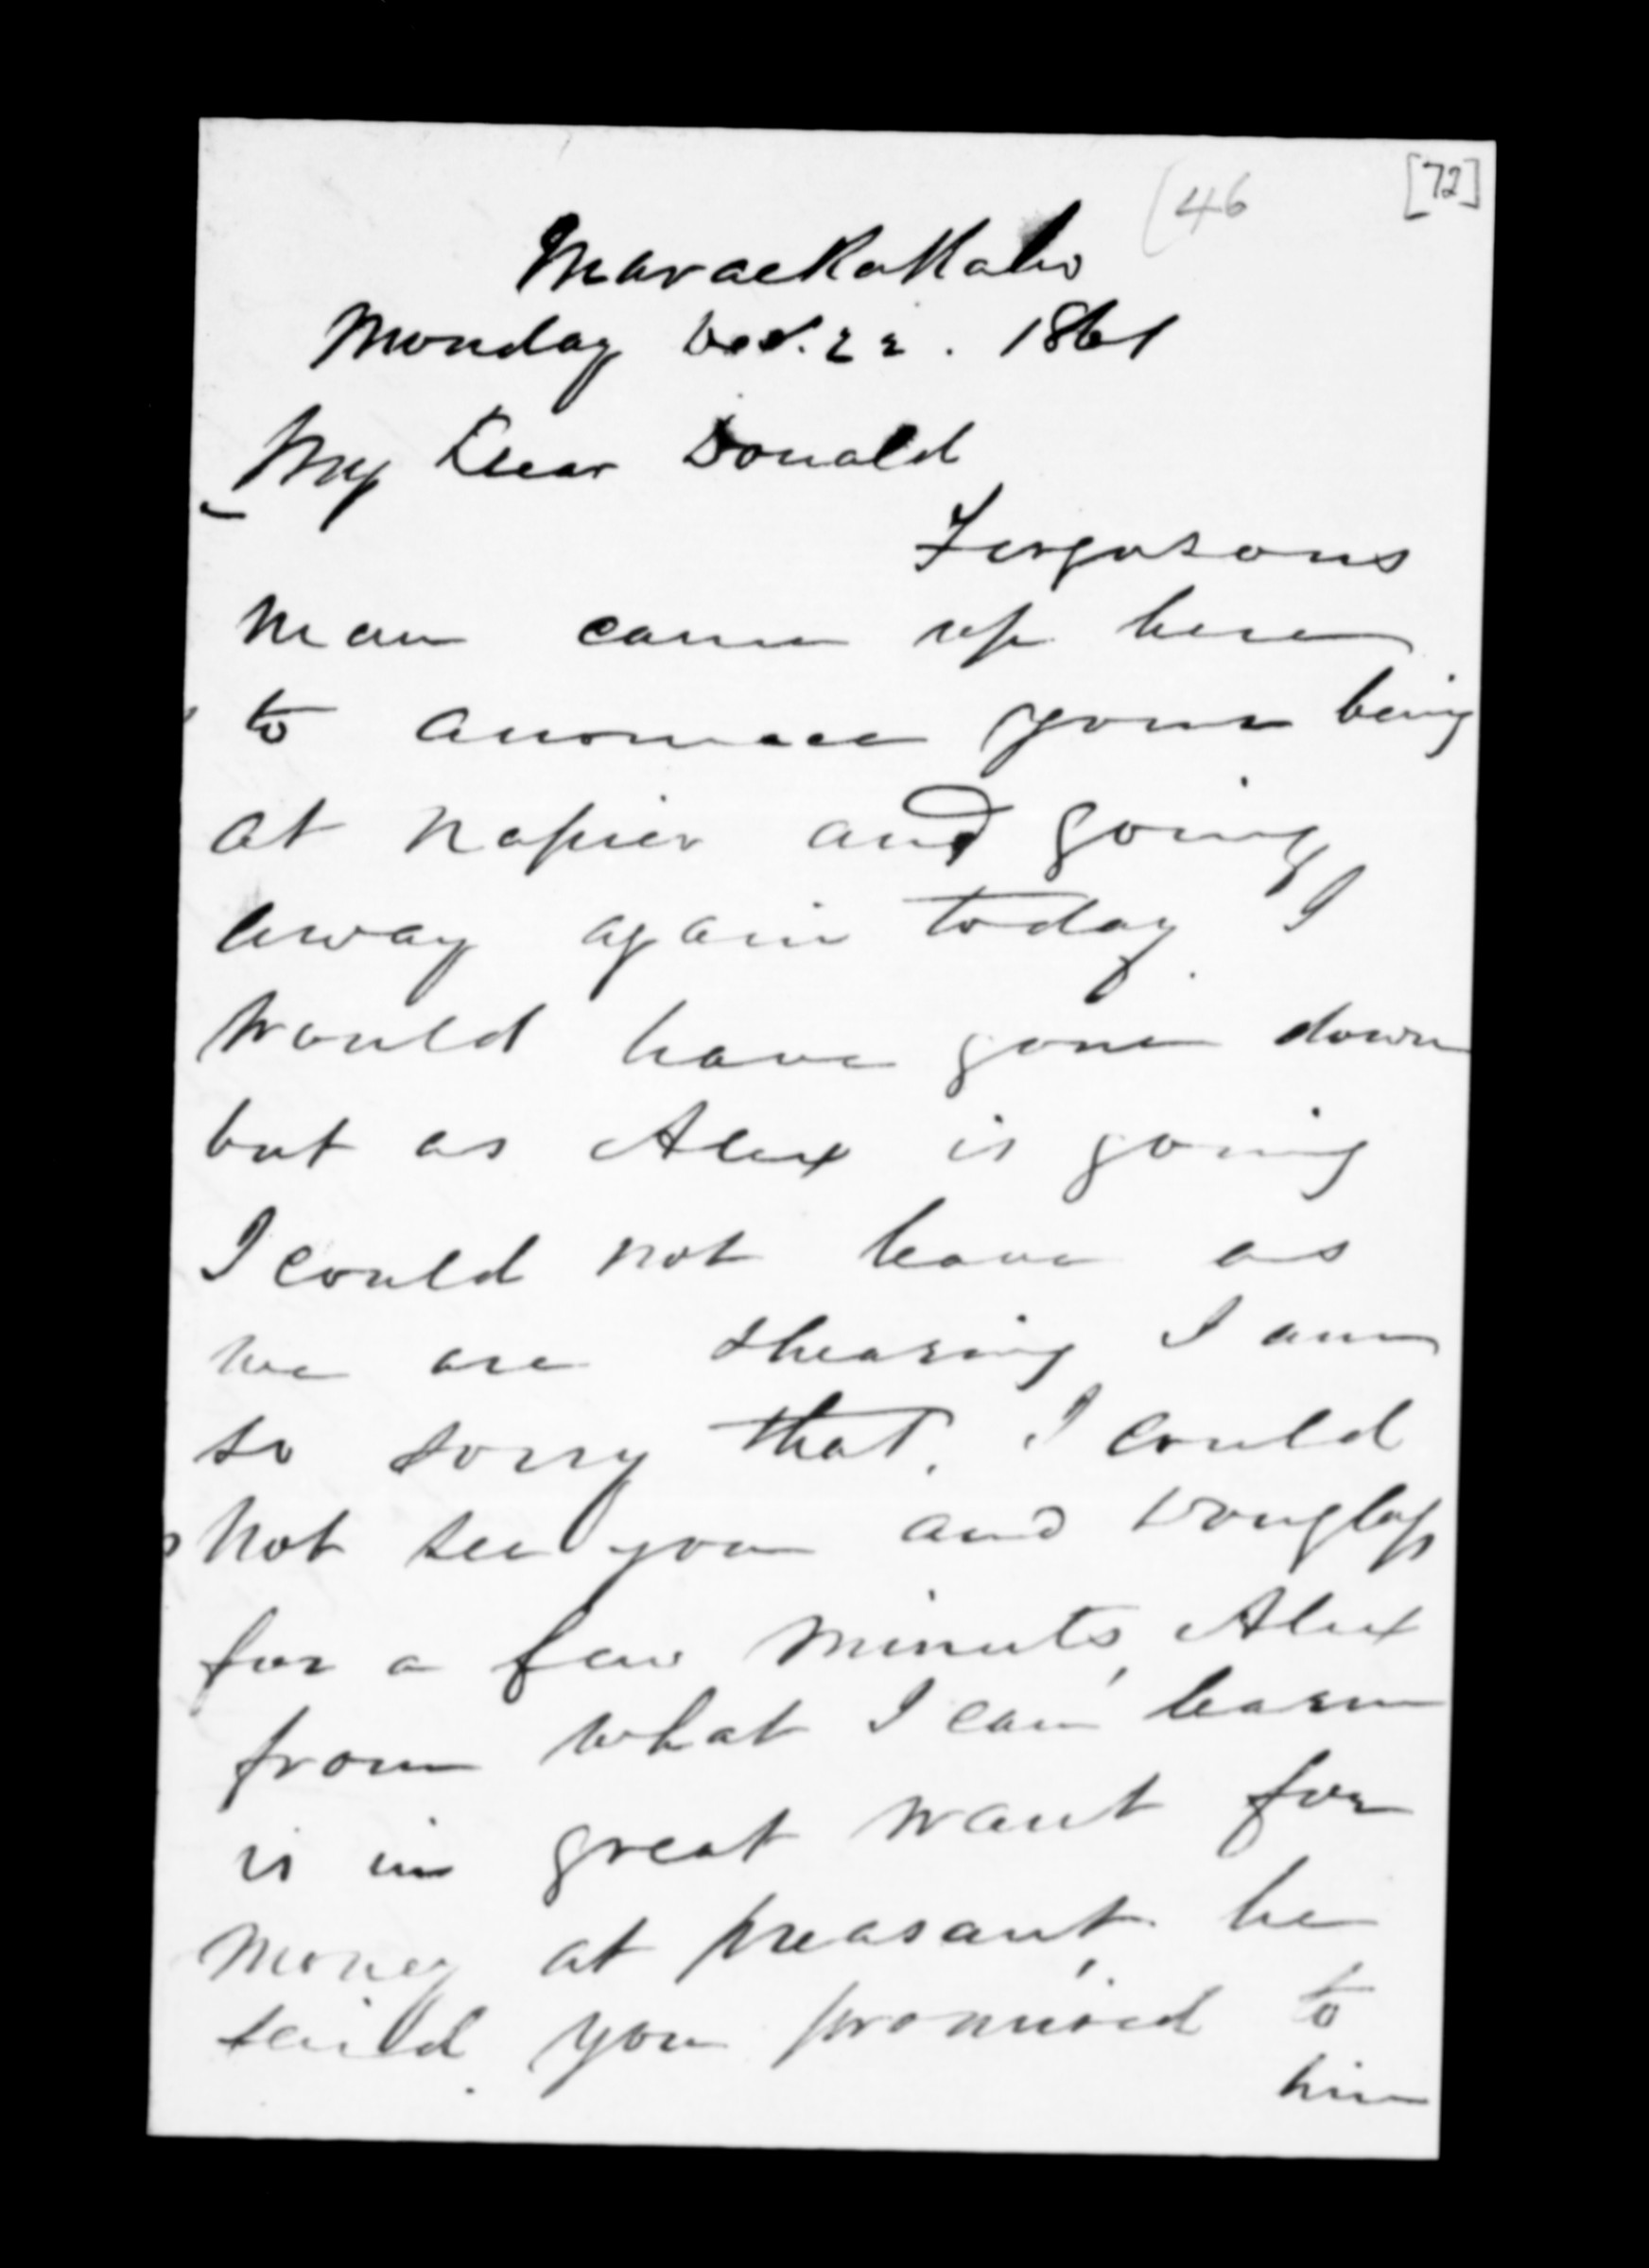 (46
[72]
MaraeKaKaho
Monday Dec. 22. 1861
My Dear Donald
Fergusons
man came up here
to anounce your being
at Napier and going
away again today. I
would have gone down
but as Alex is going
I could not leave as
we are shearing I am
so sorry that. I could
not see you and Douglass
for a few minuts, Alex
from what I can learn
is in great want for
money at preasant, he
said you promised to
him